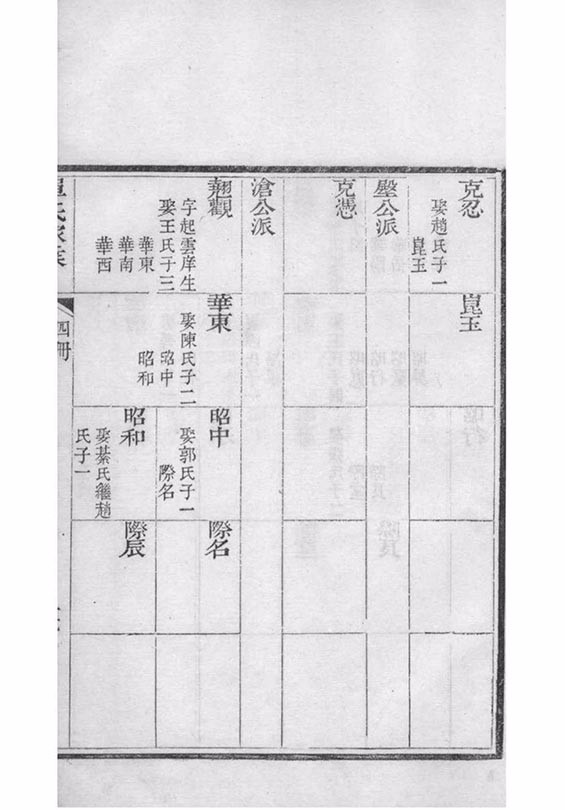 克忍
娶趙氏子一
崑玉
崑玉
壂公派
克憑
滄公派
翹觀
字起雲庠生
娶王氏子三
華東
華南
華西
華東
娶陳氏子二
昭中
昭和
昭中
娶郭氏子一
際名
際名
昭和
娶綦氏繼趙
氏子一
際辰
四冊